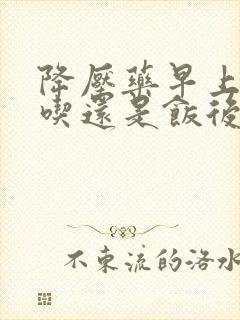 降壓藥早上
喫還是飯後
不東流的洛水